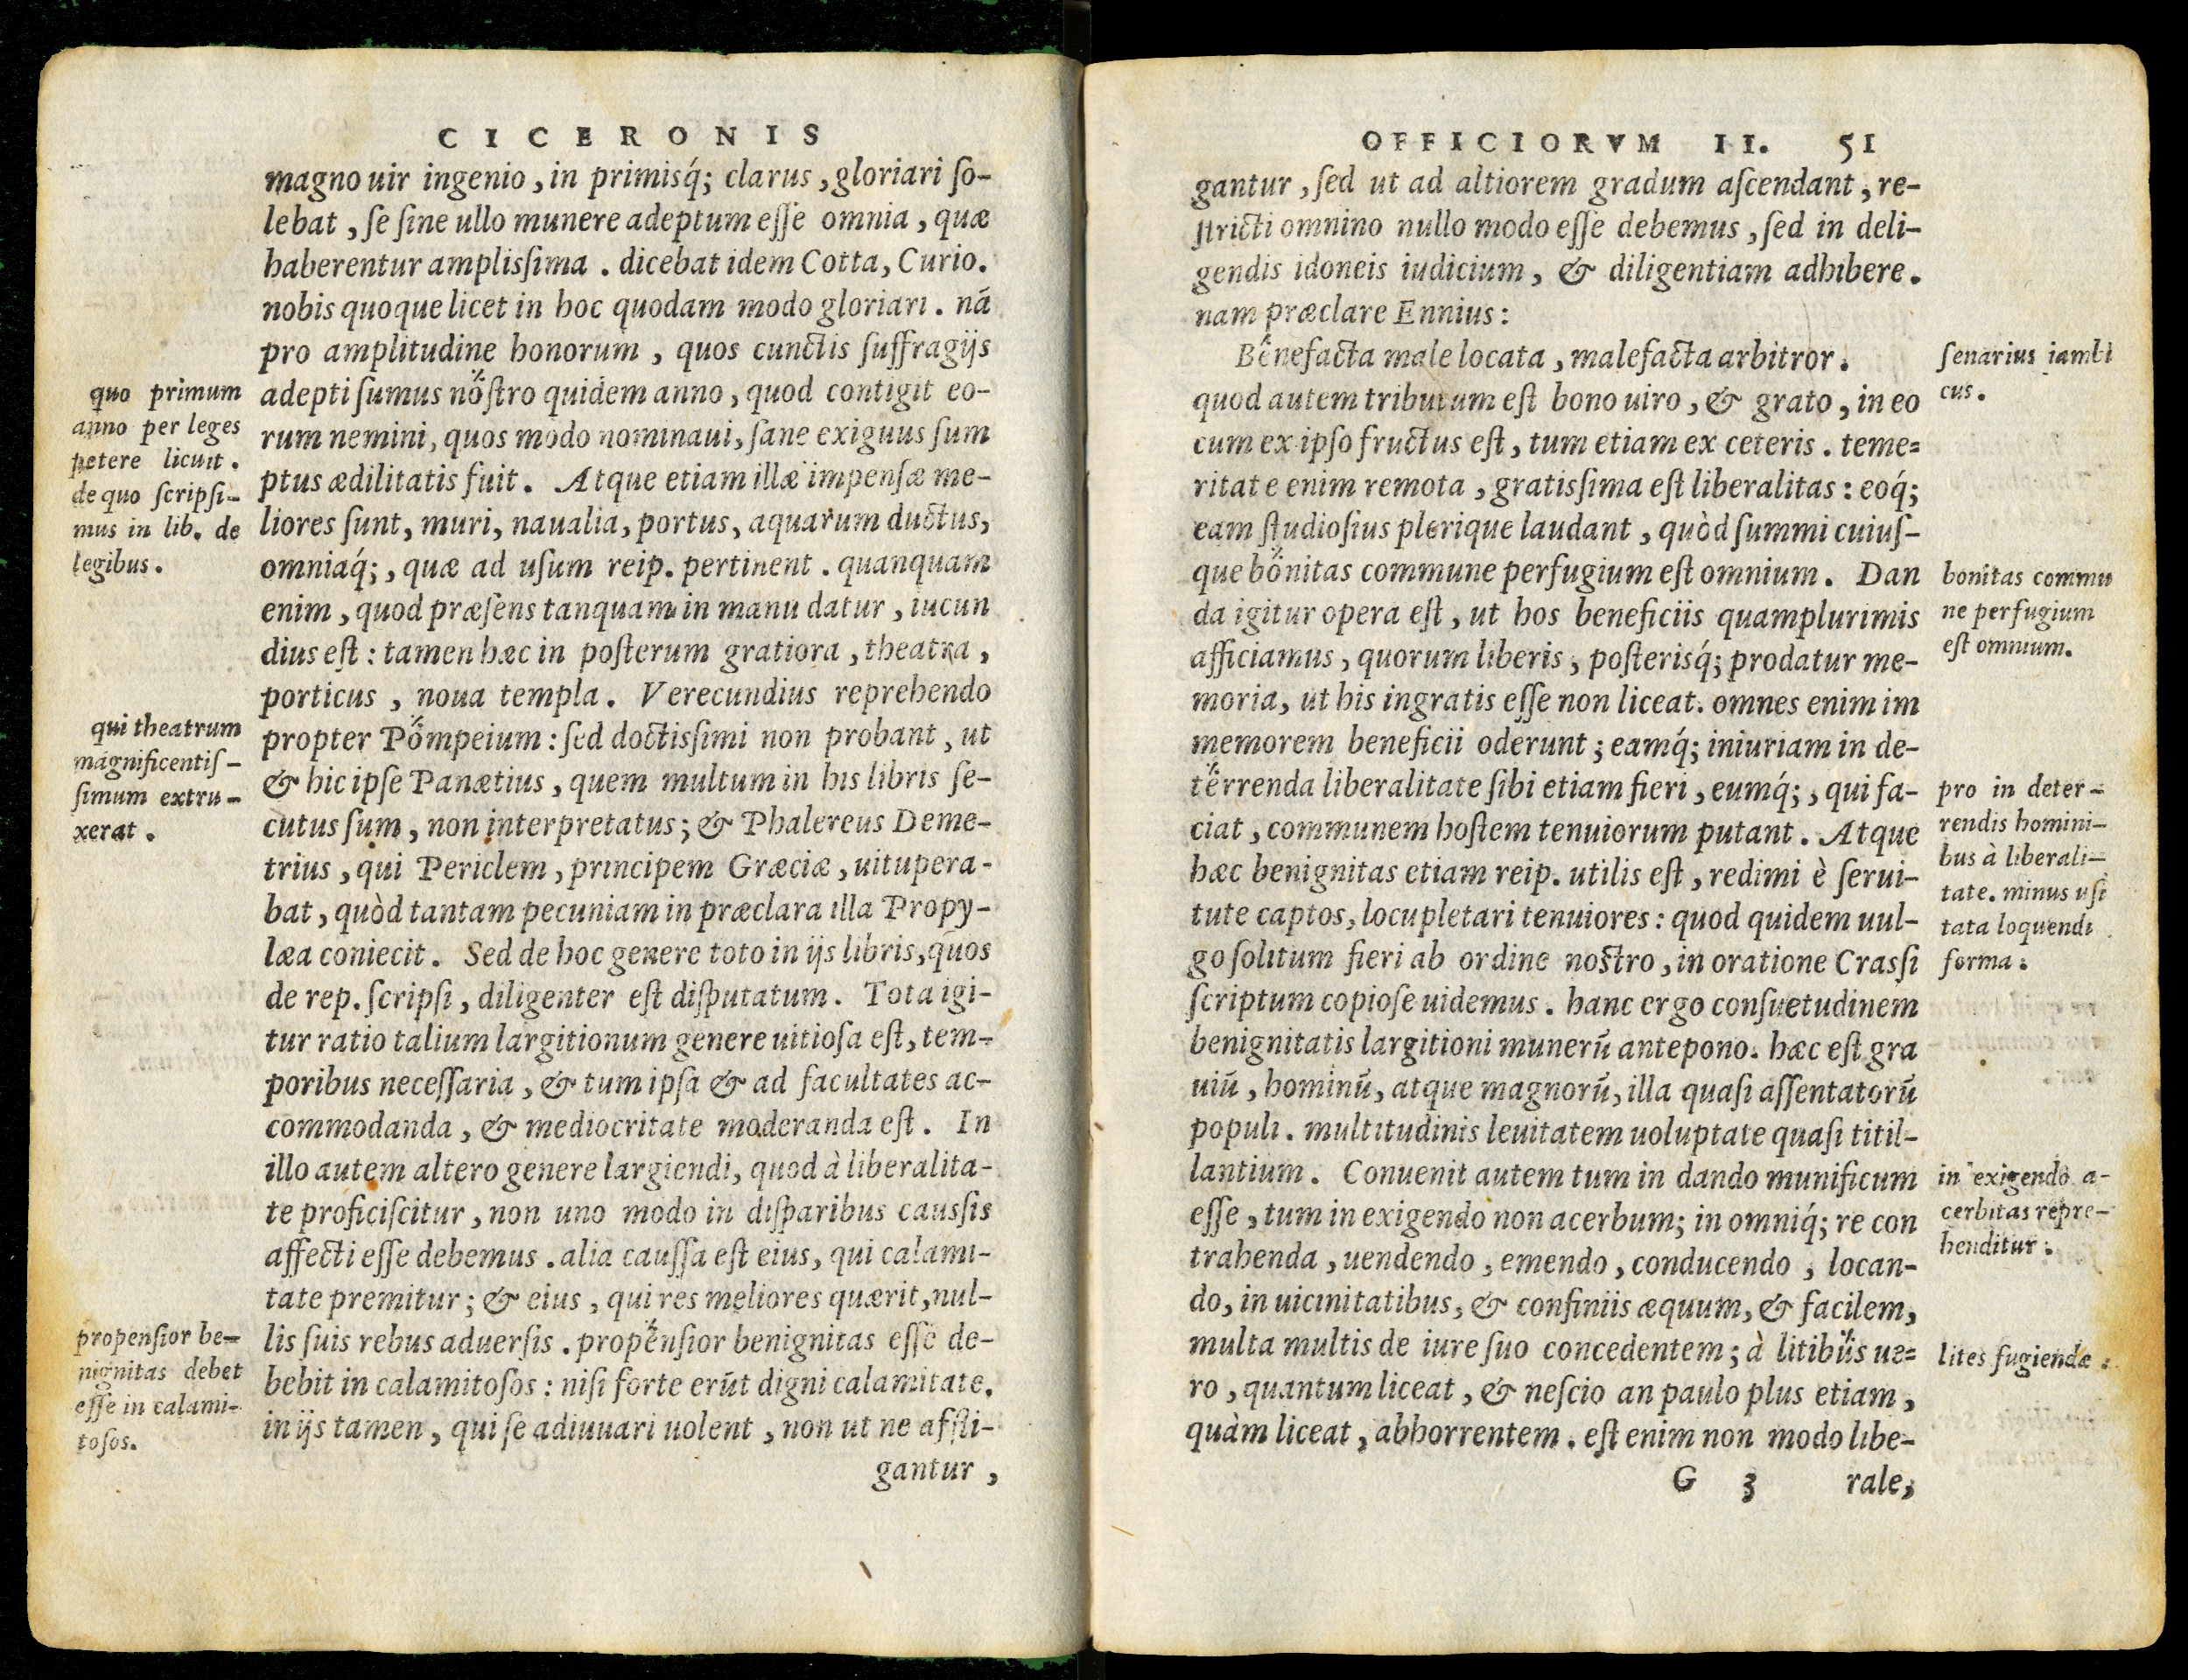 CICERONIS
magno uir ingenio, in primisq́; clarus, gloriari ſo-
lebat, ſe ſine ullo munere adeptum eſſe omnia, quæ
haberentur ampliſsima. dicebat idem Cotta, Curio.
nobis quoque licet in hoc quodam modo gloriari. nã
pro amplitudine honorum, quos cunctis ſuffragijs
adepti ſumus noſtro quidem anno, quod contigit eo-
rum nemini, quos modo nominaui, ſane exiguus ſum
ptus ædilitatis fuit. Atque etiam illæ impenſæ me-
liores ſunt, muri, naualia, portus, aquarum ductus,
omniaq́;, quæ ad uſum reip. pertinent. quanquam
enim, quod præſens tanquam in manu datur, iucun
dius eſt: tamen hæc in poſterum gratiora, theatra,
porticus, noua templa. Verecundius reprehendo
propter Pompeium: ſed doctiſsimi non probant, ut
& hic ipſe Panætius, quem multum in his libris ſe-
cutus ſum, non interpretatus; & Phalereus Deme-
trius, qui Periclem, principem Græciæ, uitupera-
bat, quòd tantam pecuniam in præclara illa Propy-
læa coniecit. Sed de hoc genere toto in ijs libris, quos
de rep. ſcripſi, diligenter eſt diſputatum. Tota igi-
tur ratio talium largitionum genere uitioſa eſt, tem-
poribus neceſſaria, & tum ipſa & ad facultates ac-
commodanda, & mediocritate moderanda eſt. In
illo autem altero genere largiendi, quod à liberalita-
te proficiſcitur, non uno modo in diſparibus cauſsis
affecti eſſe debemus. alia cauſſa eſt eius, qui calami-
tate premitur; & eius, qui res meliores quærit, nul-
lis ſuis rebus aduerſis. propenſior benignitas eſſe de-
bebit in calamitoſos: niſi forte erũt digni calamitate.
in ijs tamen, qui ſe adiuuari uolent, non ut ne affli-
gantur,
quo primum
anno per leges
petere licuit.
de quo ſcripſi-
mus in lib. de
legibus.
qui theatrum
magnificentiſ-
ſimum extru-
xerat.
propenſior be-
nignitas debet
eſſe in calami-
toſos.
OFFICIORVM II. 51
gantur, ſed ut ad altiorem gradum aſcendant, re-
ſtricti omnino nullo modo eſſe debemus, ſed in deli-
gendis idoneis iudicium, & diligentiam adhibere.
nam præclare Ennius:
Benefacta male locata, malefacta arbitror.
quod autem tributum eſt bono uiro, & grato, in eo
cum ex ipſo fructus eſt, tum etiam ex ceteris. teme-
ritate enim remota, gratiſsima eſt liberalitas: eoq́;
eam ſtudioſius plerique laudant, quòd ſummi cuiuſ-
que bonitas commune perfugium eſt omnium. Dan
da igitur opera eſt, ut hos beneficiis quamplurimis
afficiamus, quorum liberis, poſterisq́; prodatur me-
moria, ut his ingratis eſſe non liceat. omnes enim im
memorem beneficii oderunt; eamq́; iniuriam in de-
terrenda liberalitate ſibi etiam fieri, eumq́;, qui fa-
ciat, communem hoſtem tenuiorum putant. Atque
hæc benignitas etiam reip. utilis eſt, redimi è ſerui-
tute captos, locupletari tenuiores: quod quidem uul-
go ſolitum fieri ab ordine noſtro, in oratione Craſſi
ſcriptum copioſe uidemus. hanc ergo conſuetudinem
benignitatis largitioni munerũ antepono. hæc eſt gra
uiũ, hominũ, atque magnorũ, illa quaſi aſſentatorũ
populi. multitudinis leuitatem uoluptate quaſi titil-
lantium. Conuenit autem tum in dando munificum
eſſe, tum in exigendo non acerbum; in omniq́; re con
trahenda, uendendo, emendo, conducendo, locan-
do, in uicinitatibus, & confiniis æquum, & facilem,
multa multis de iure ſuo concedentem; à litibus ue-
ro, quantum liceat, & neſcio an paulo plus etiam,
quàm liceat, abhorrentem. eſt enim non modo libe-
G 3 rale,
ſenarius iambi
cus.
bonitas commu
ne perfugium
eſt omnium.
pro in deter-
rendis homini-
bus à liberali-
tate. minus uſi
tata loquendi
forma.
in exigendo a-
cerbitas repre-
henditur.
lites fugiendæ.